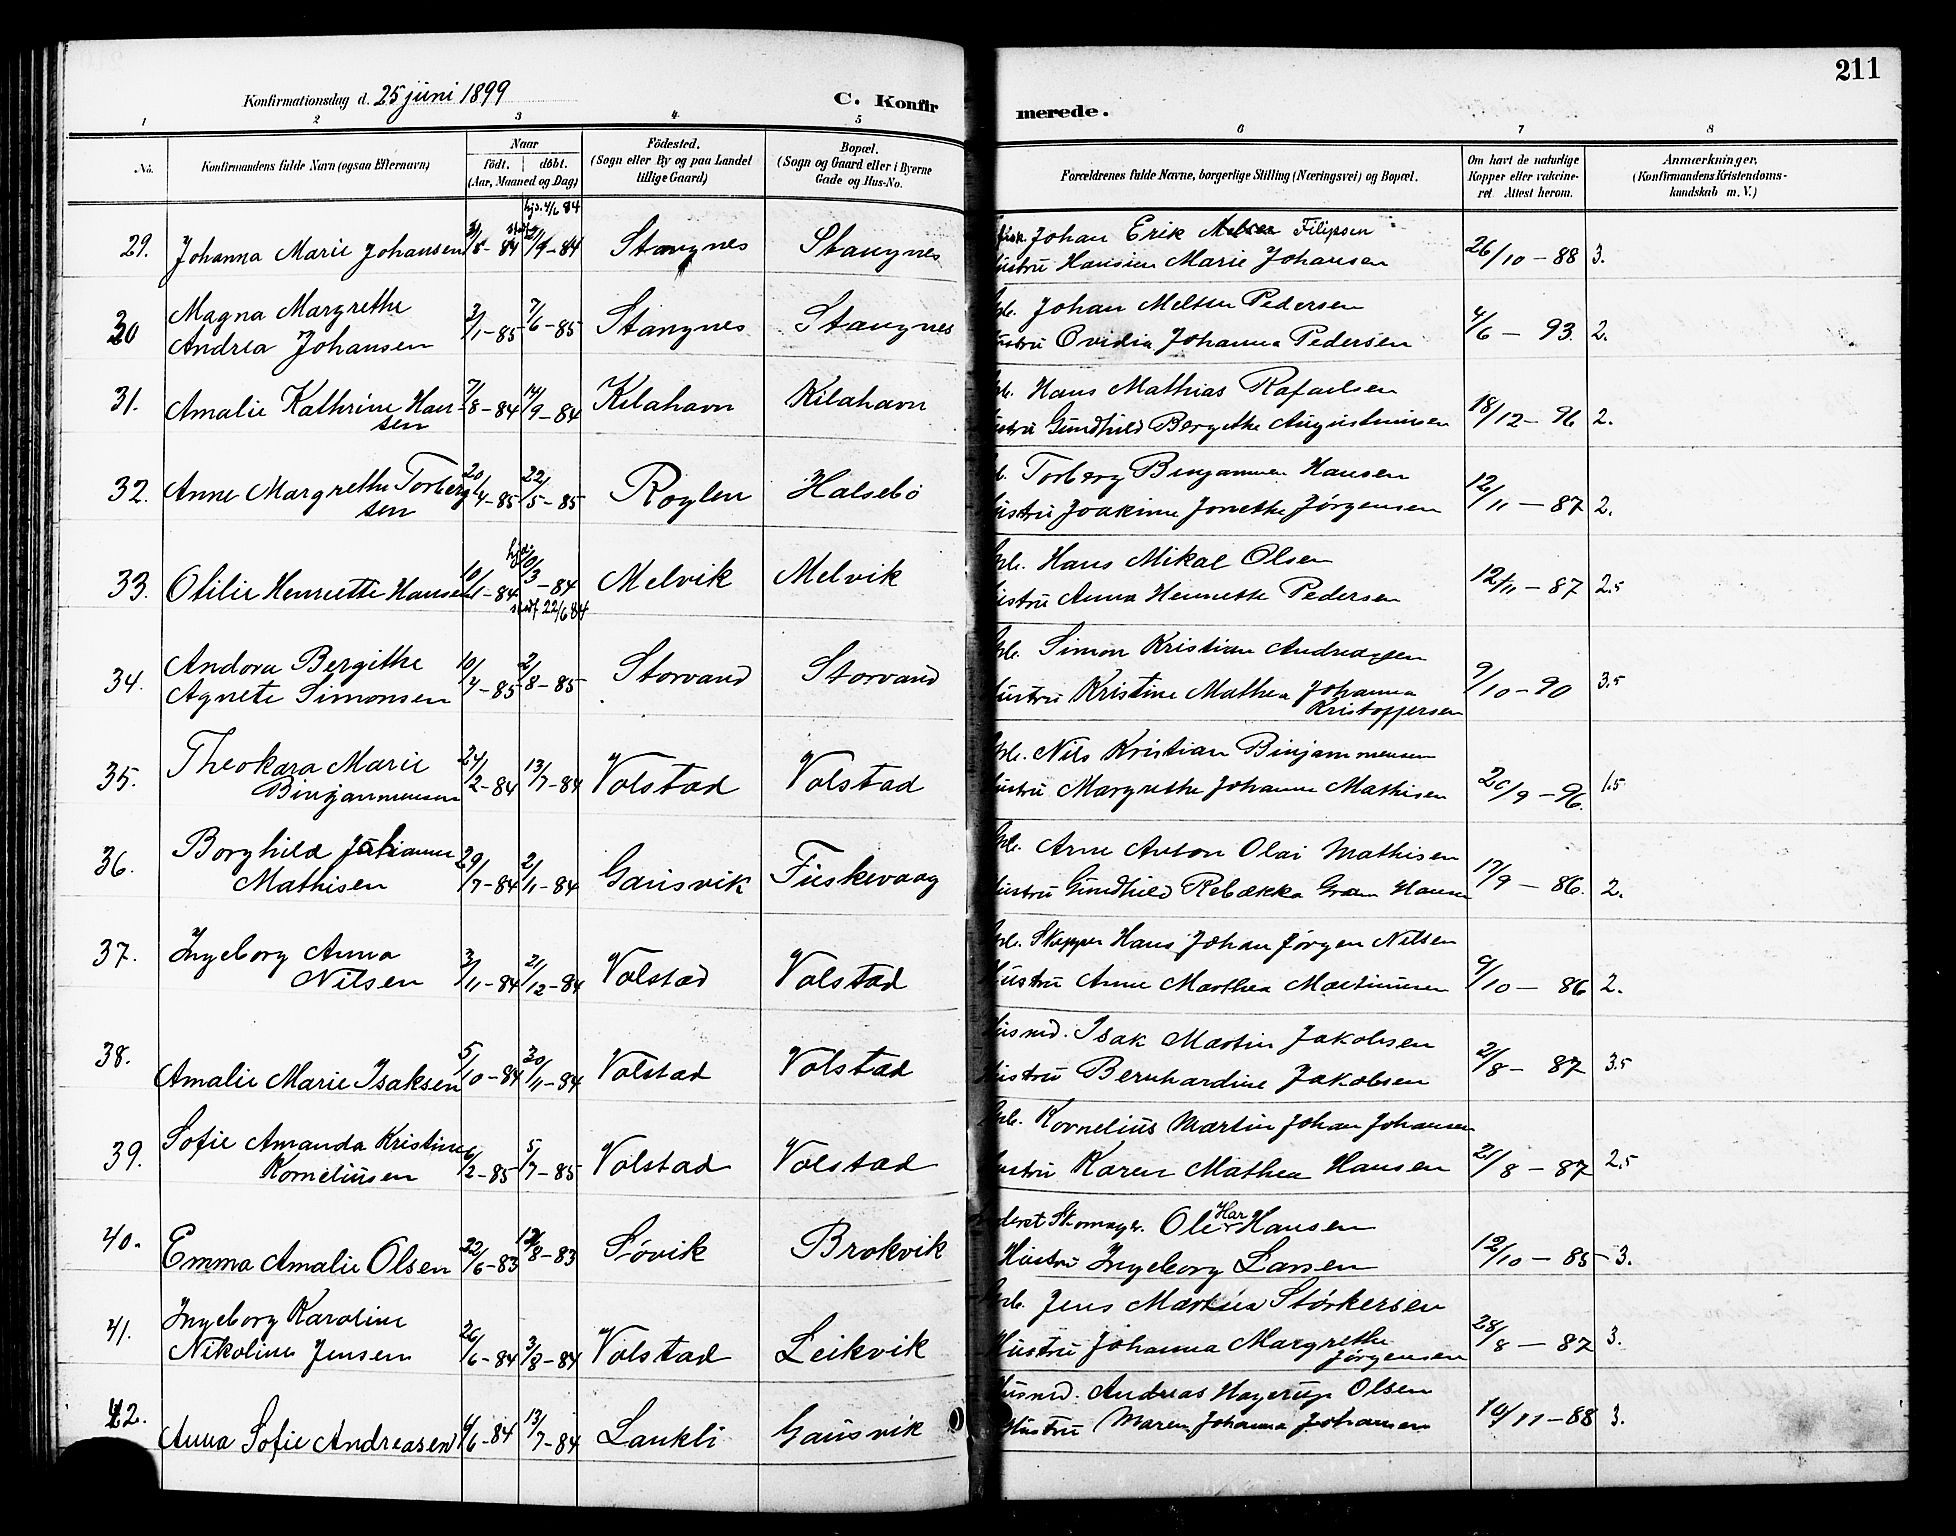 211
Konfirmationsdag d. 25 juni 1899
C. Konfir
merede.
1 2 3 4 5 6 7 8
No.
Konfirmandens fulde Navn (ogsaa Efternavn)
Naar
födt. döbt.
(Aar, Maaned og Dag)
Födested.
(Sogn eller By og paa Landet
tillige Gaard)
Bopæl.
(Sogn og Gaard eller i Byerne
Gade og Hus-No.
Forældrenes fulde Navne, borgerlige Stilling (Næringsvei) og Bopæl.
Om havt de naturlige
Kopper eller vakcine-
ret. Attest herom.
Anmærkninger,
(Konfirmandens Kristendoms-
kundskab m. V.)
hjd. 4/6 84
29. Johanna Marie Johansen Stangnes Stangnes
Johan Erik Filipsen
Hustru Hansine Marie Johansen 26/10 - 88 3.
30 Magna Margrethe
Andrea Johansen 3/1-85 7/6-85 Stangnes Stangnes
Johan Meltsen Pedersen
Hustru Ovidia Johanna Pedersen 4/6 - 93. 2.
31. Amalie Kathrine Han-
sen 7/8-84 14/9-84 Kilahavn Kilahavn
Hans Mathias Rafaelsen
Gundhild Bergethe Augustinusen 18/12-96 2.
32. Anne Margrethe Torberg
sen 20/4-85 22/5-85 Roglen Halsebö
Torberg Binjammen Hansen
Hustru Joakime Jonethe Jørgensen 12/11 - 87 2.
33. Otilie Henriette Hansen 10/1-84 hjd. 10/3-84 Melvik Melvik
22/6 84
Hans Mikal Olsen
Hustru Anna Henriette Pedersen 12/11 - 87 2.5
34. Andora Bergithe
Agnete Simonsen 10/4-85 2/8-85 Storvand Storvand
Simon Kristian Andreassen
Hustru Kristine Mathea Johanna
Kristoffersen 9/10-90 3.5
35. Theokara Marie
Binjammensen 24/2-84 13/7-84 Volstad Volstad
Nils Kristian Binjammensen
Hustru Margrethe Johanne Mathisen 20/9-96. 1.5
36. Borghild Julianne
Mathisen 29/7-84 2/11-84 Gausvik Fuskevaag
Arne Anton Olai Mathisen
Hustru Gundhild Rebækka Gram Hansen 17/9 - 86. 2.
37. Ingeborg Anna
Nilsen 3/11-84 21/12-84 Volstad Volstad
Skipper Hans Johan Jörgen Nilsen
Hustru Anne Marthea Martinusen 9/10 - 86 2.
38. Amalie Marie Isaksen 5/10-84 30/11-84 Volstad Volstad
Husmd. Isak Martin Jakobsen
Hustru Bernhardine Jakobsen 21/8 - 87 3.5
39. Sofie Amanda Kristine
Korneliusen 6/2-85 5/7-85 Volstad Volstad
Kornelius Martin Johan Johansen
Hustru Karen Mathea Hansen 21/8 - 87 2.5
40. Emma Amalie Olsen 22/6-83 12/8-83 Sövik Brokvik
Skomager. Ole Har Hansen
Hustru Ingeborg Larsen 12/10 - 85 - 3.
41. Ingeborg Karoline
Nikoline Jensen 26/6-84 3/8-84 Volstad Leikvik
Jens Martin Störkersen
Hustru Johanna Margrethe
Jørgensen 28/8 - 87 3.
42. Anna Sofie Andreasen 4/6-84 13/7-84 Laukli Gausvik
Husmd. Andreas Hagerup Olsen
Hustru Maren Johanna Johansen 10/11-88 3.